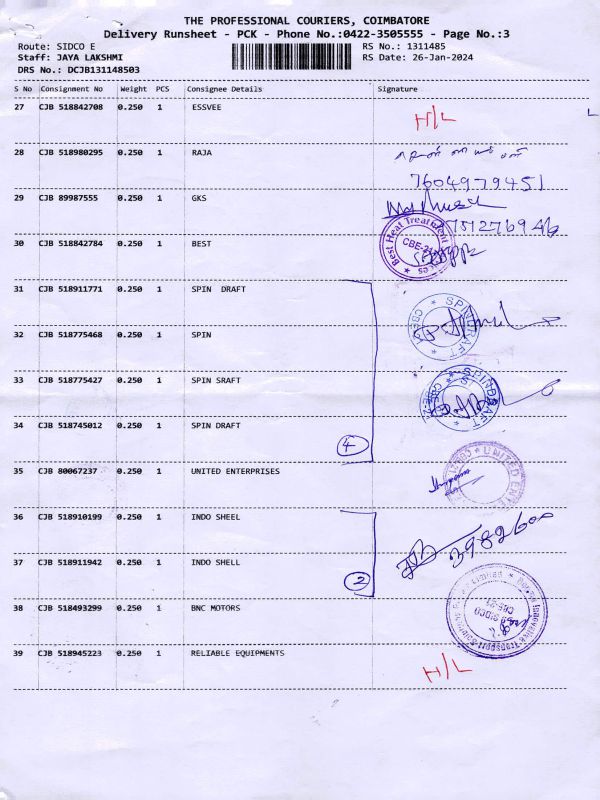 THE PROFESSIONAL COURIERS, COIMBATORE
Delivery Runsheet - PCK - Phone No.:0422-3505555 - Page No.:3
Route: SIDCO E RS No.: 1311485
Staff: JAYA LAKSHMI RS Date: 26-Jan-2024
DRS No.: DCJB131148503
S No Consignment No Weight PCS Consignee Details Signature
27 CJB 518842708 0.250 1 ESSVEE H/L
28 CJB 518980295 0.250 1 RAJA
7604979451
29 CJB 89987555 0.250 1 GKS
30 CJB 518842784 0.250 1 BEST
Best Heat Treatment
CBE-21
31 CJB 518911771 0.250 1 SPIN DRAFT
SPINDRAFT
32 CJB 518775468 0.250 1 SPIN
33 CJB 518775427 0.250 1 SPIN SRAFT
SPINDRAFT
34 CJB 518745012 0.250 1 SPIN DRAFT
4
35 CJB 80067237 0.250 1 UNITED ENTERPRISES
UNITED
36 CJB 518910199 0.250 1 INDO SHEEL
3982600
37 CJB 518911942 0.250 1 INDO SHELL
2
38 CJB 518493299 0.250 1 BNC MOTORS
SIDCO
CBE-21
39 CJB 518945223 0.250 1 RELIABLE EQUIPMENTS H/L